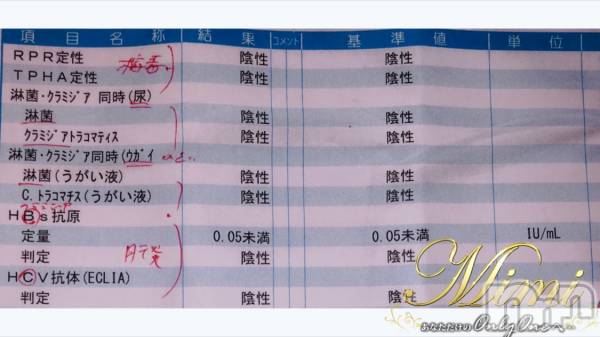 項目名称 結果 コメント 基準値 単位
RPR定性 陰性 陰性
梅毒
TPHA定性 陰性 陰性
淋菌・クラミジア 同時(尿)
淋菌 陰性 陰性
クラミジアトラコマティス 陰性 陰性
淋菌・クラミジア同時(ウガイ
淋菌(うがい液) 陰性 陰性
C.トラコマチス(うがい液) 陰性 陰性
HBs抗原
定量 0.05未満 0.05未満 IU/mL
肝炎
判定 陰性 陰性
HCV抗体(ECLIA)
判定 陰性 陰性
Mimi
あなただけのOnlyOneへ…